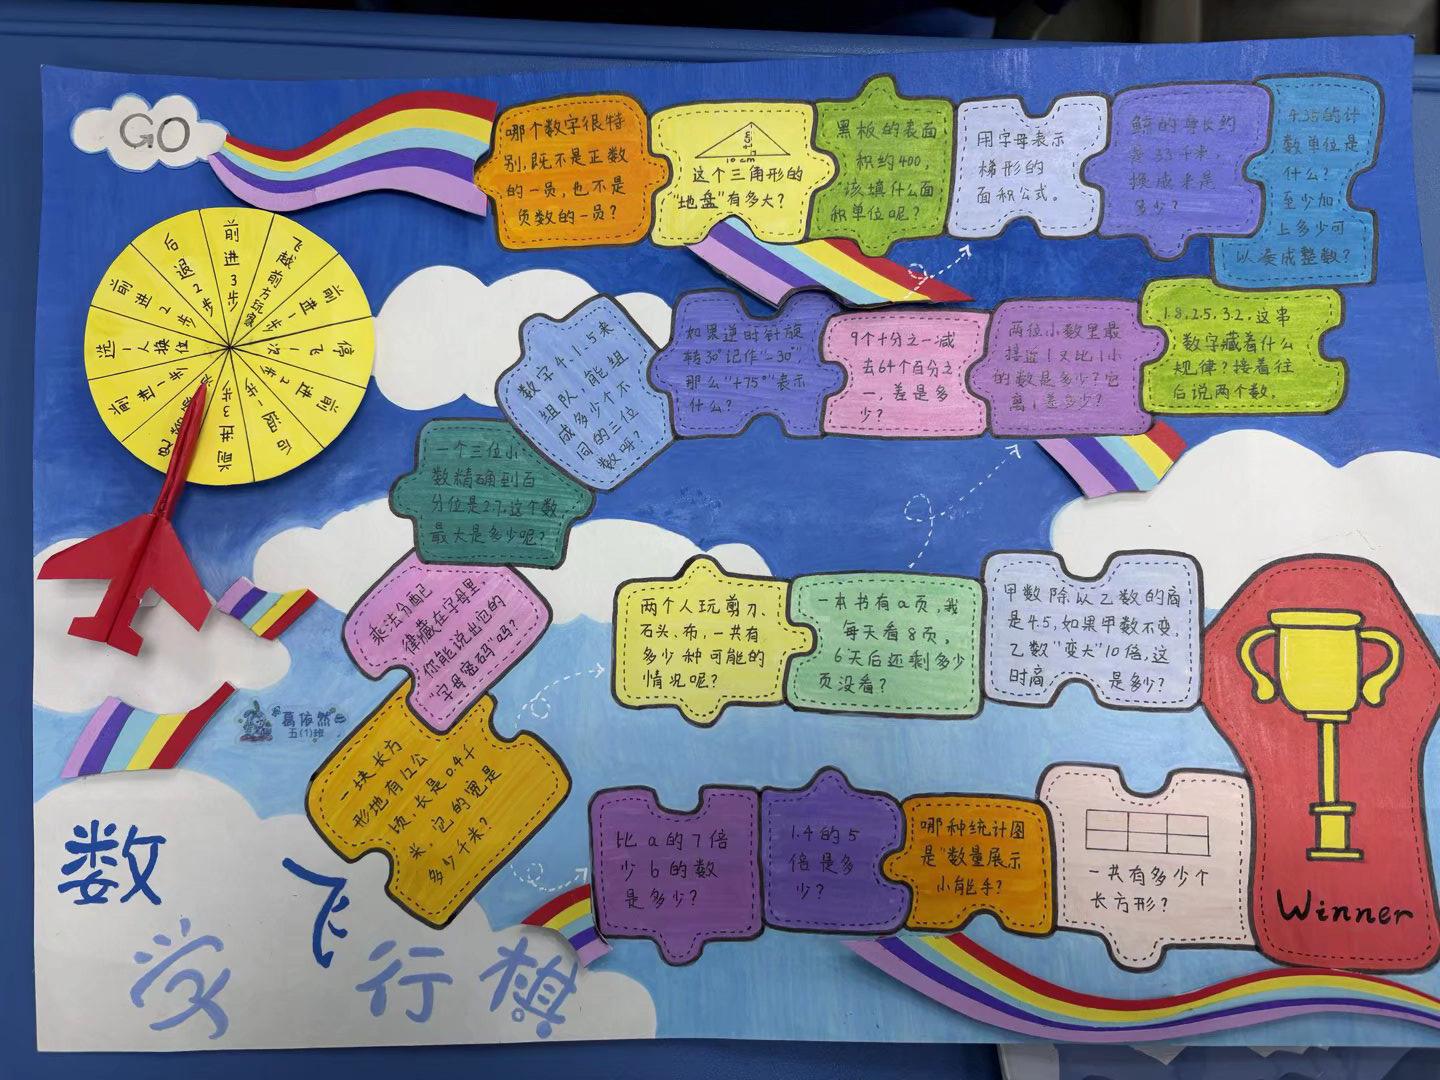 GO
哪个数字很特
别,既不是正数
的一员,也不是
负数的一员?
4cm
10 cm
这个三角形的
"地盘"有多大?
黑板的表面
积约400,
该填什么面
积单位呢?
用字母表示
梯形的
面积公式。
鲸的身长约
换成米是
多少?
4.35的计
数单位是
什么?
至少加
上多少可
以凑成整数?
前进3步
飞越前方玩家
前进1步
停飞1次
前进2步
后退1步
前进3步
前进1步
选1人换位
前进2步
后退2步
数字4、1、5来
组队,能组
成多少个不
同的三位
数呀?
如果逆时针旋
转30°记作"-30°",
那么"+75°"表示
什么?
9个十分之一减
去64个百分之
一,差是多
少?
两位小数里最
接近1又比1小
的数是多少?它
离1差多少?
1.8,2.5,3.2,这串
数字藏着什么
规律?接着往
后说两个数。
一个三位小
数精确到百
分位是2.7,这个数
最大是多少呢?
乘法分配
律藏在字母里,
你能说出它的
"字母密码"吗?
两个人玩剪刀、
石头、布,一共有
多少种可能的
情况呢?
一本书有a页,我
每天看8页,
6天后还剩多少
页没看?
甲数除以乙数的商
是4.5,如果甲数不变,
乙数"变大"10倍,这
时商是多少?
葛依然
五(1)班
一块长方
形地有12公
顷,长是0.4千
米,它的宽是
多少千米?
比a的7倍
少b的数
是多少?
1.4的5
倍是多
少?
哪种统计图
是"数量展示
小能手?
一共有多少个
长方形?
Winner
数学飞行棋